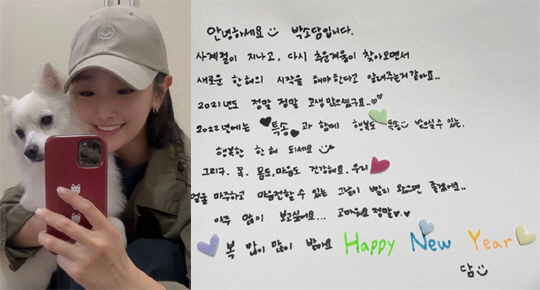 안녕하세요 박소담입니다.
사계절이 지나고, 다시 추운겨울이 찾아오면서
새로운 한 해의 시작을 해야한다고 알려주는거같아요..
2021년도 정말 정말 고생 많으셨구요..
2022년에는 특송과 함께 행복도 받으실 수 있는,
행복한 한 해 되세요
그리구, 꼭, 몸도,마음도 건강해요. 우리
얼굴 마주하고 마음전할 수 있는 그날이 빨리 오면 좋겠어요..
아주 많이 보고싶어요... 고마워요 정말
복 많이 많이 받아요 Happy New Year
담